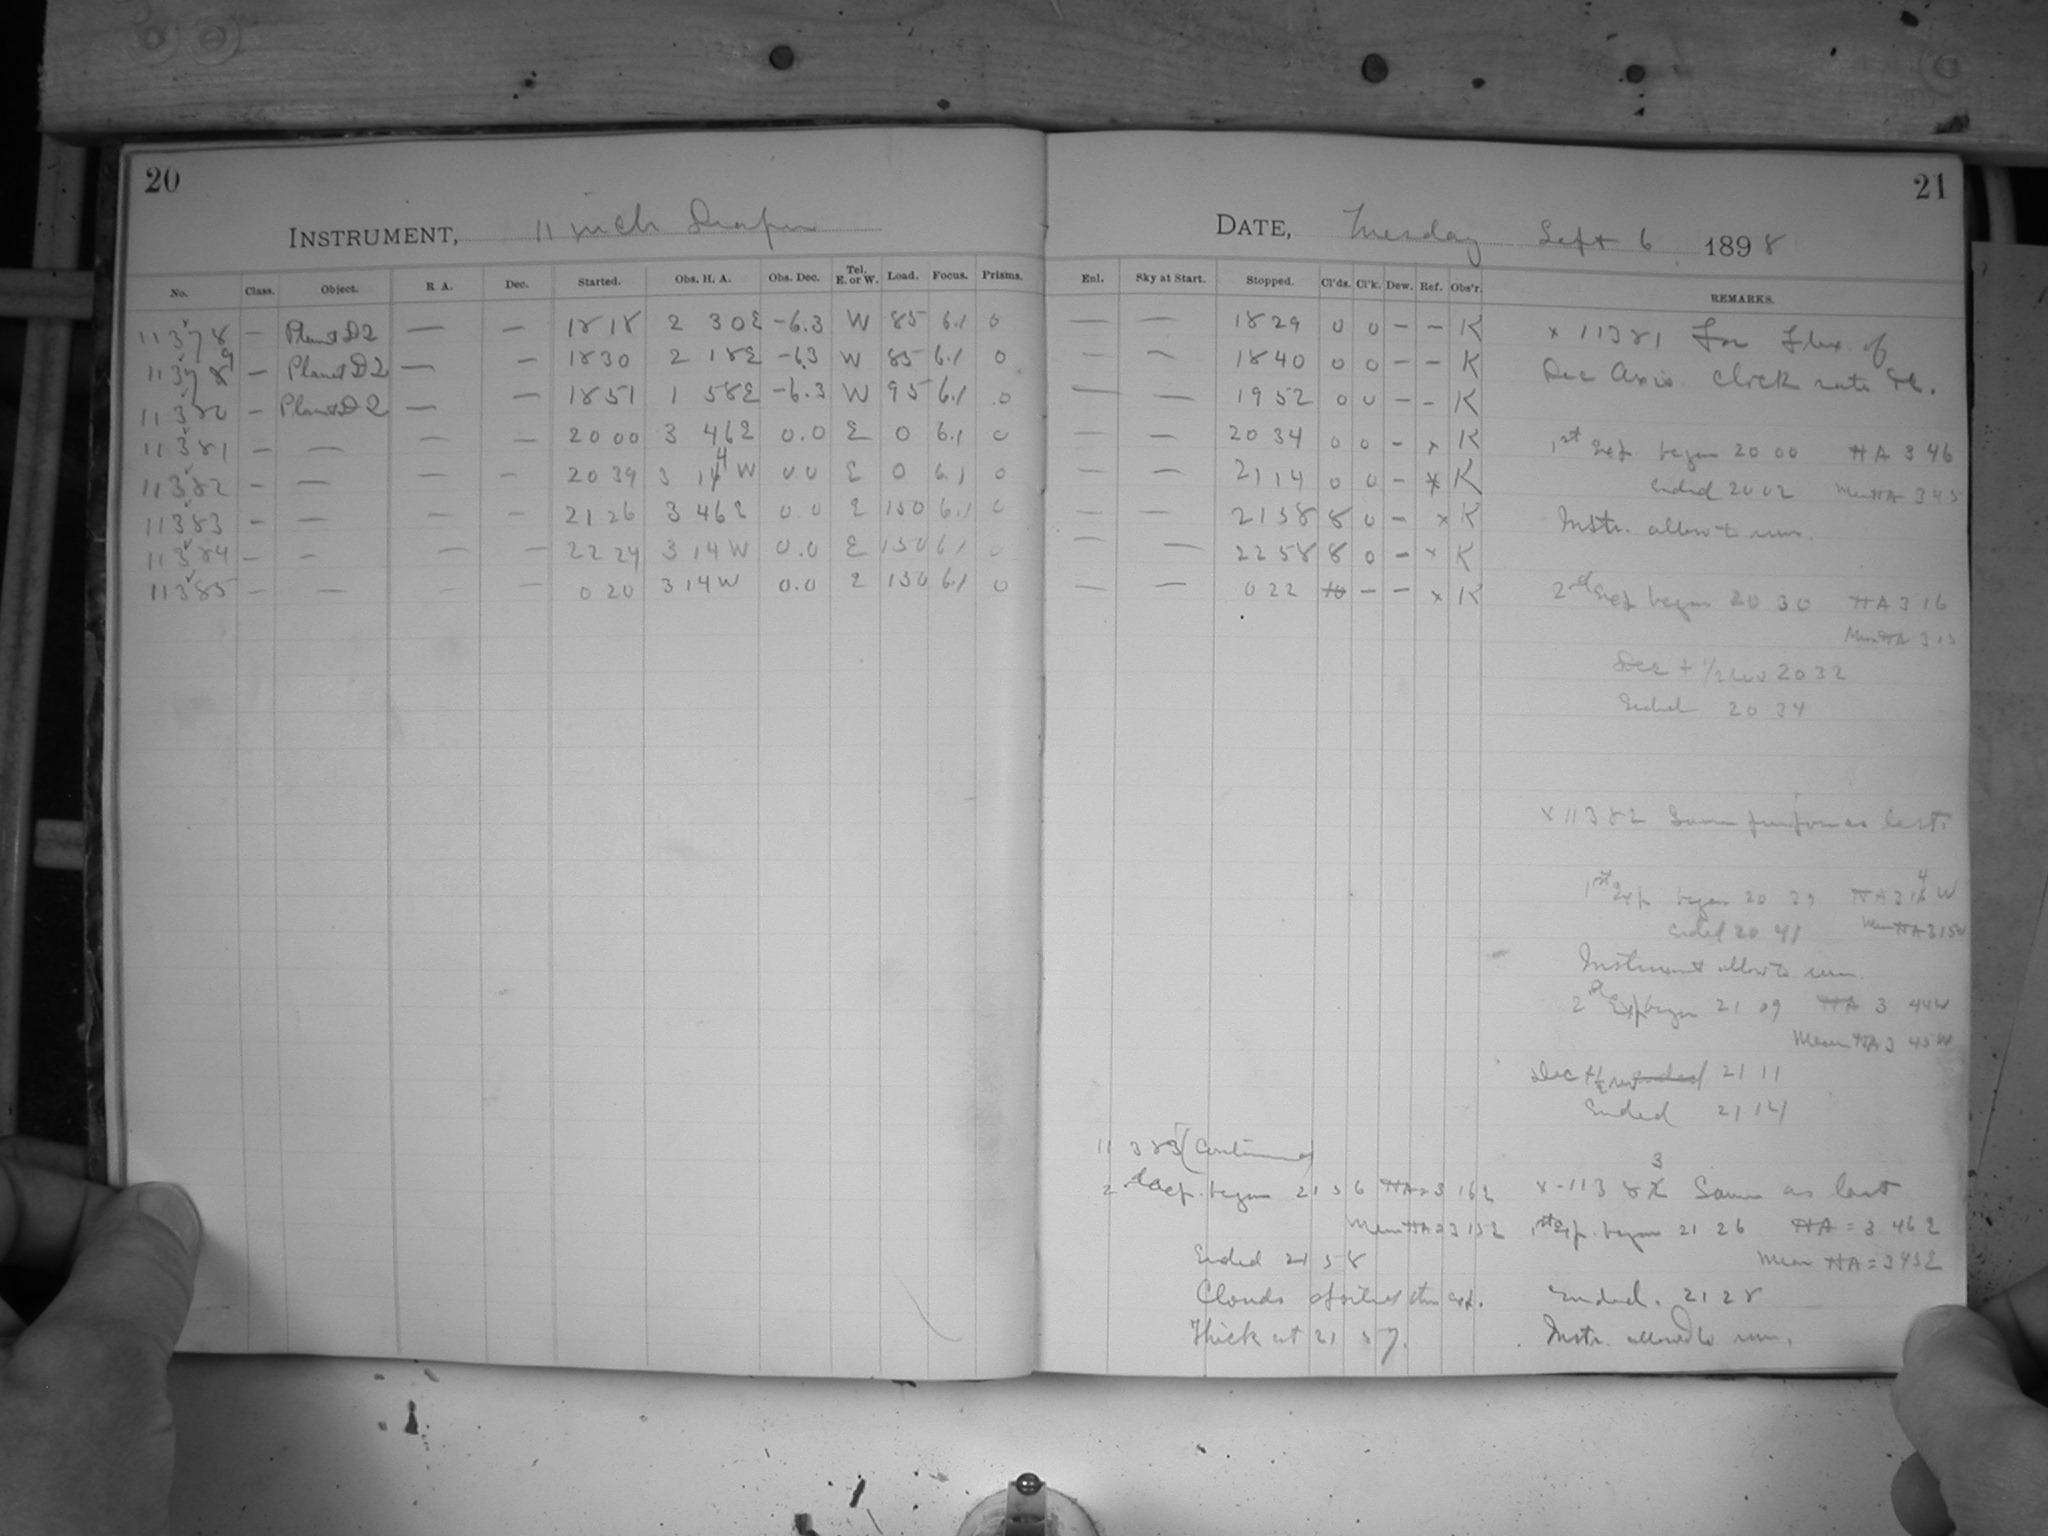 20
INSTRUMENT, 11 inch Draper
No. Class. Object. R A. Dec. Started. Obs. H. A. Obs. Dec. Tel. E. or W. Load. Focus. Prisms.
11378 — Planet D2 — — 18 18 2 30 E -6.3 W 85 6.1 0
11379 — Planet D2 — — 18 30 2 18 E -6.3 W 85 6.1 0
11380 — Planet D2 — — 18 51 1 58 E -6.3 W 95 6.1 0
11381 — — — — 20 00 3 46 E 0.0 E 0 6.1 0
11382 — — — — 20 39 3 14 W 0.0 E 0 6.1 0
11383 — — — — 21 26 3 46 E 0.0 E 150 6.1 0
11384 — — — — 22 24 3 14 W 0.0 E 150 6.1 0
11385 — — — — 0 20 3 14 W 0.0 E 150 6.1 0
21
DATE, Tuesday Sept 6 1898
Enl. Sky at Start. Stopped. Cl'ds. Cl'k. Dew. Ref. Obs'r. REMARKS.
— — 18 29 0 0 — — K
— — 18 40 0 0 — — K
— — 19 52 0 0 — — K
— — 20 34 0 0 — x K
— — 21 14 0 0 — x K
— — 21 58 8 0 — x K
— — 22 58 8 0 — x K
— — 0 22 10 — — x K
x 11381 For Flex. of
Dec Axis. Clock rate &c.
1st Exp. began 20 00 HA 3 46
Ended 20 02 Mean HA 3 45
Instr. allow to run.
2nd Exp began 20 30 HA 3 16
Mean HA 3 15
Dec + 1/2 rev 20 32
Ended 20 34
x 11382 Same purpose as last.
1st Exp. began 20 39 HA 3 14 W
Ended 20 41 Mean HA 3 15 W
Instrument allow to run.
2d Exp began 21 09 HA 3 44 W
Mean HA 3 45 W
Dec + 1/2 rev 21 11
Ended 21 14
x - 11383 Same as last
1st Exp. began 21 26 HA = 3 46 E
Mean HA = 3 45 E
Ended. 21 28
Instr. allowed to run.
11383 (Continued)
2nd Exp. began 21 56 HA = 3 16 E
Mean HA = 3 15 E
Ended 21 58
Clouds spoiled this exp.
Thick at 21 57.